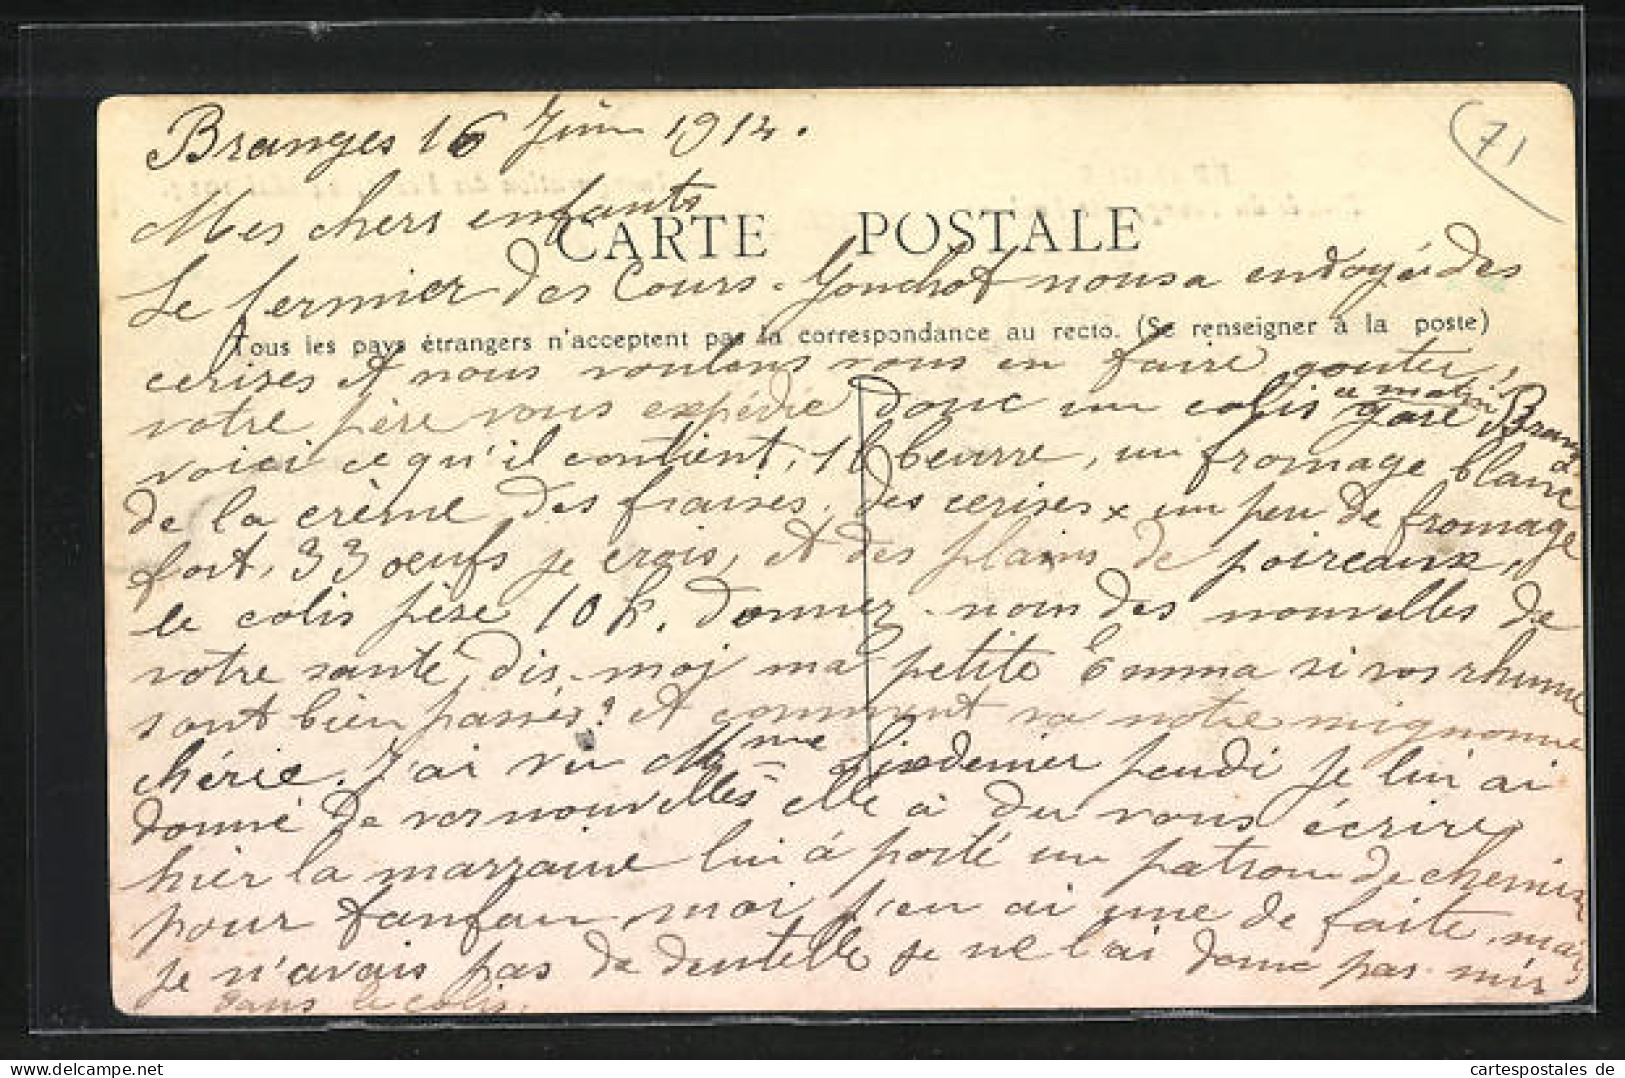 Branges 16 Juin 1914.
71
Mes chers enfants
CARTE POSTALE
Le fermier des Cours-Gonchot nous a envoyé des
Tous les pays étrangers n'acceptent pas la correspondance au recto. (Se renseigner à la poste)
cerises et nous voulons vous en faire gouter,
votre père vous expédie donc un colis ce matin gare Branges
voici ce qu'il contient, 1l beurre, un fromage blanc
de la crème des fraises, des cerises x un peu de fromage
fort, 33 œufs je crois, et des plains de poireaux,
le colis pèse 10 k. donnez-nous des nouvelles de
votre santé, dis-moi ma petite Emma si vos rhume
sont bien passés? et comment va notre mignonne
chérie. J'ai vu Mme jeudi je lui ai
donné de vos nouvelles elle à du vous écrire,
hier la marraine lui à porté un patron de chemise
pour fanfan, moi j'en ai une de faite, mais
je n'avais pas de dentelle je ne l'ai donc pas mis
dans le colis.
cartespostales de